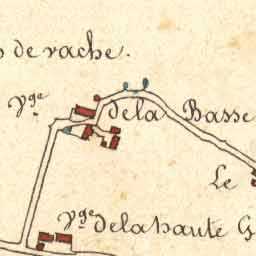 de vache.
Vge. de la Basse
Le
Vge de la haute G